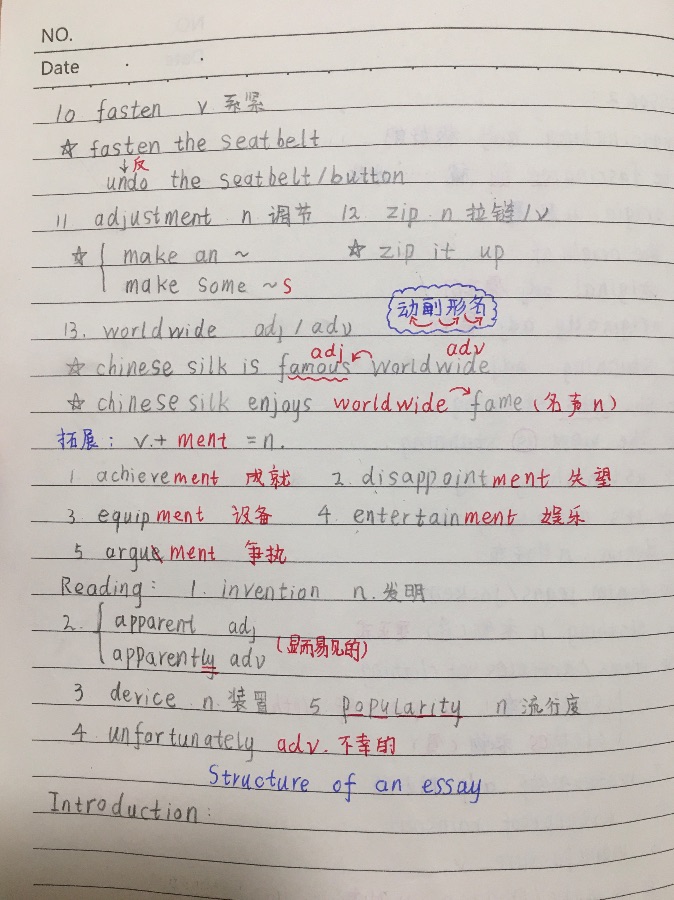 NO.
Date
10 fasten v 系紧
☆ fasten the seatbelt
↓反
undo the seatbelt/button
11 adjustment n 调节 12 zip n 拉链/v
☆ { make an ~ ☆ zip it up
make some ~s
动副形名
13. worldwide adj/adv
adj adv
☆ chinese silk is famous worldwide
☆ chinese silk enjoys worldwide fame (名声n)
拓展: v.+ment =n.
1 achievement 成就 2. disappointment 失望
3 equipment 设备 4. entertainment 娱乐
5 argument 争执
Reading: 1. invention n.发明
2. { apparent adj
apparently adv (显而易见的)
3 device n.装置 5 popularity n 流行度
4. unfortunately adv.不幸的
Structure of an essay
Introduction: